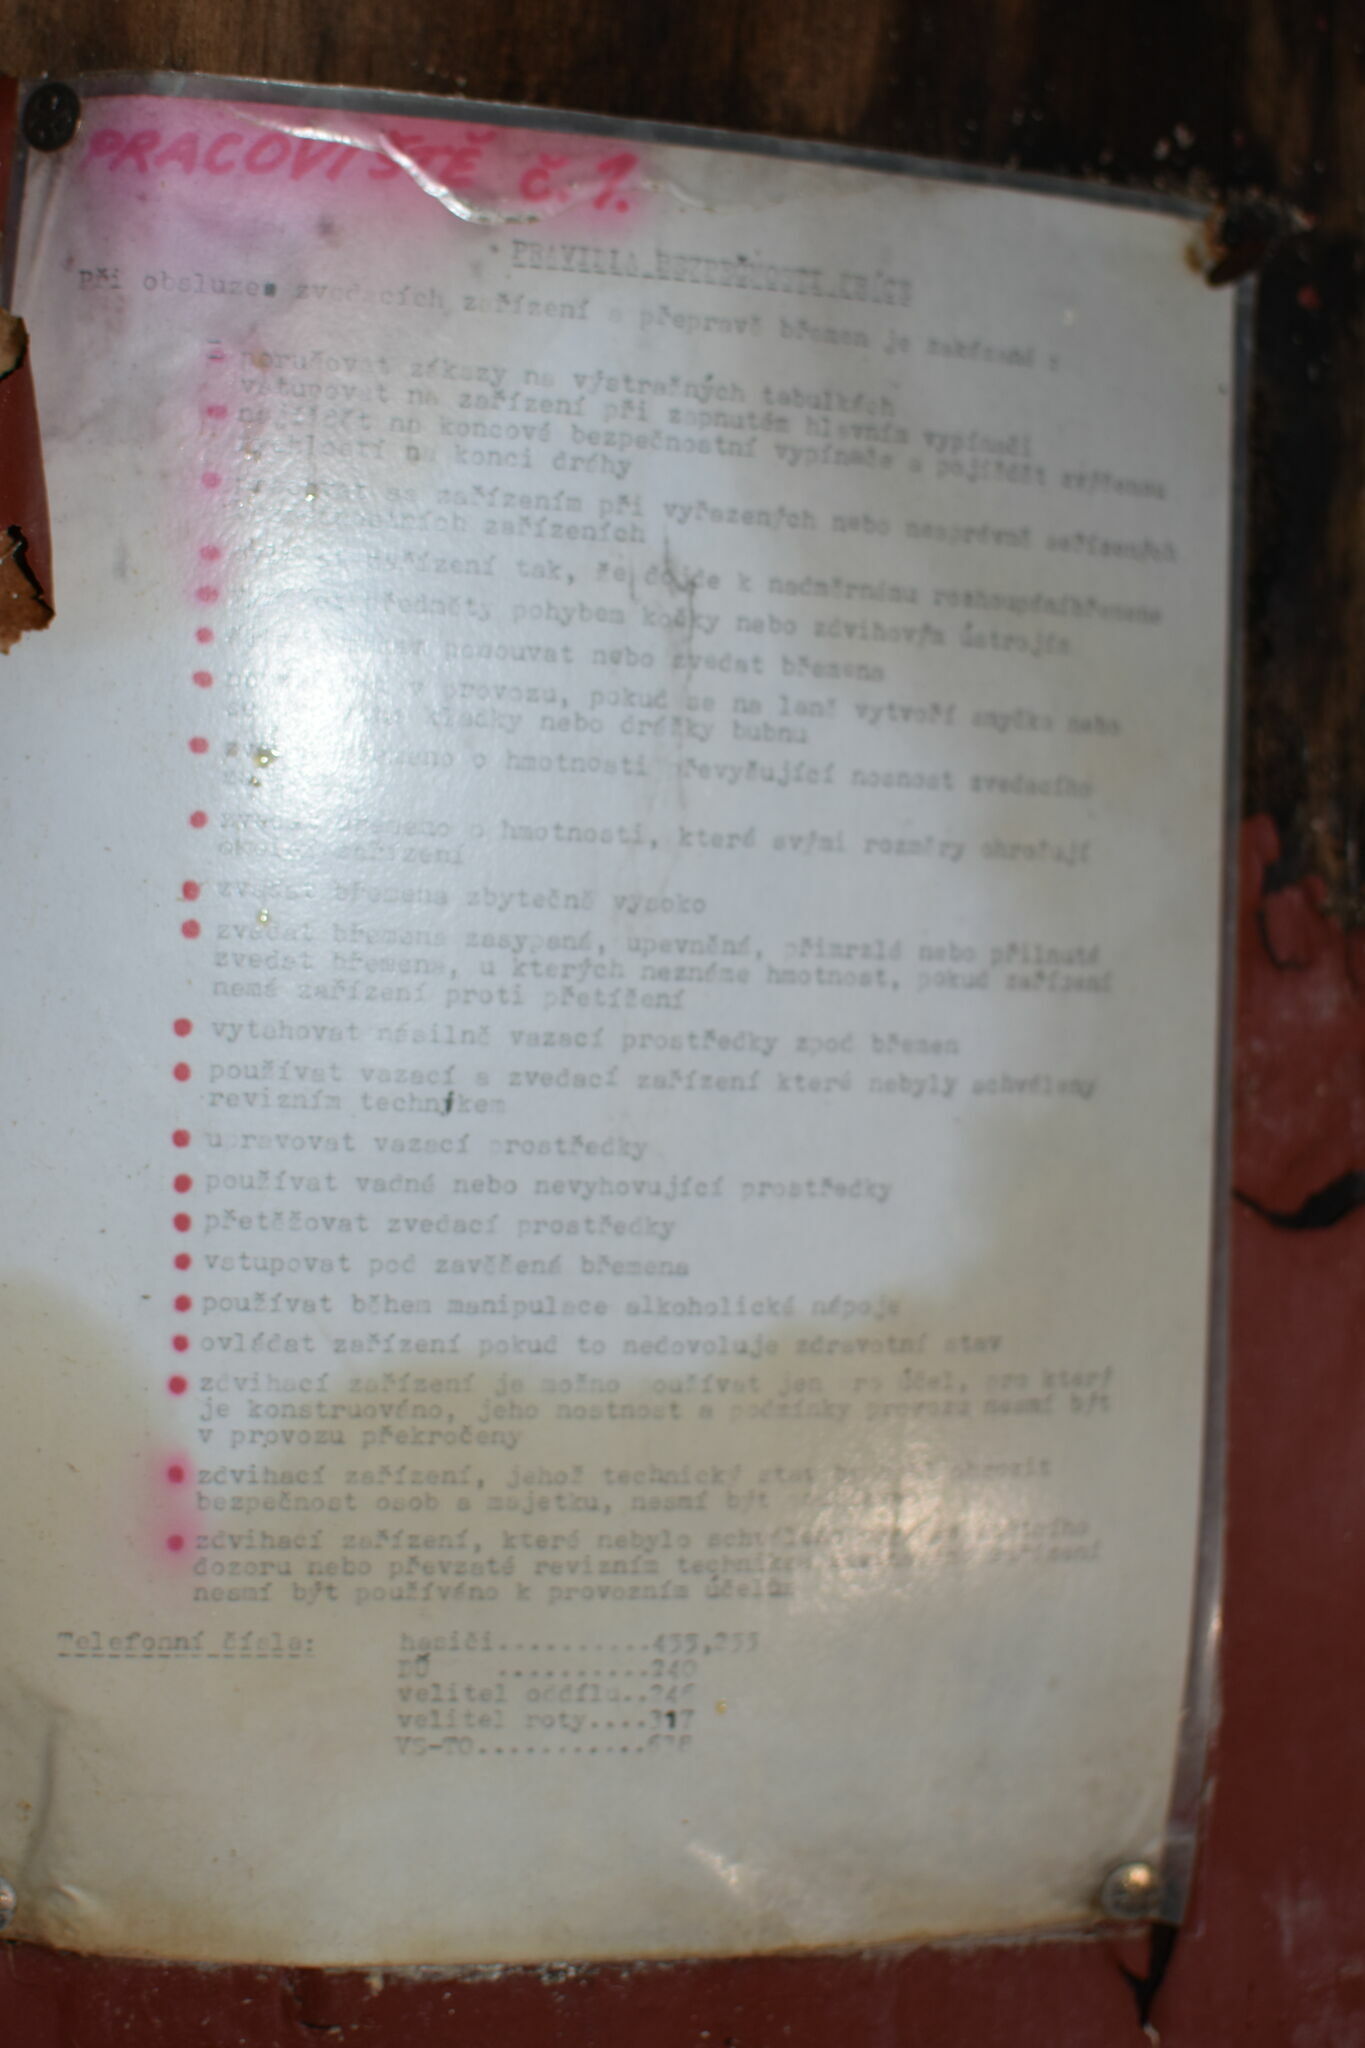 PRACOVIŠTĚ č. 1.
PRAVIDLA BEZPEČNOSTI PRÁCE
Při obsluze zvedacích zařízení a přepravě břemen je zakázáno :
porušovat zákazy na výstražných tabulkách
vstupovat na zařízení při zapnutém hlavním vypínači
najíždět na koncové bezpečnostní vypínače a pojíždět zvýšenou
rychlostí na konci dráhy
pracovat se zařízením při vyřazených nebo nesprávně seřízených
zařízeních
zařízení tak, že dojde k nadměrnému rozhoupáníbřemene
předměty pohybem kočky nebo zdvihovým ústrojím
posouvat nebo zvedat břemena
v provozu, pokud se na laně vytvoří smyčka nebo
kladky nebo drážky bubnu
o hmotnosti převyšující nosnost zvedacího
zvedat břemeno o hmotnosti, které svými rozměry ohrožují
okolní zařízení
zvedat břemena zbytečně vysoko
zvedat břemena zasypaná, upevněná, přimrzlá nebo přilnutá
zvedat břemena, u kterých neznáme hmotnost, pokud zařízení
nemá zařízení proti přetížení
vytahovat násilně vazací prostředky zpod břemen
používat vazací a zvedací zařízení které nebyly schváleny
revizním technikem
upravovat vazací prostředky
používat vadné nebo nevyhovující prostředky
přetěžovat zvedací prostředky
vstupovat pod zavěšená břemena
používat během manipulace alkoholické nápoje
ovládat zařízení pokud to nedovoluje zdravotní stav
zdvihací zařízení je možno používat jen pro účel, pro který
je konstruováno, jeho nostnost a podmínky provozu nesmí být
v provozu překročeny
zdvihací zařízení, jehož technický stav ohrozit
bezpečnost osob a majetku, nesmí být
zdvihací zařízení, které nebylo schváleno
dozoru nebo převzaté revizním technikem zařízení
nesmí být používáno k provozním účelům
Telefonní čísla: hasiči..........455,255
DÚ ..........240
velitel oddílu..246
velitel roty....317
VS-TO...........638